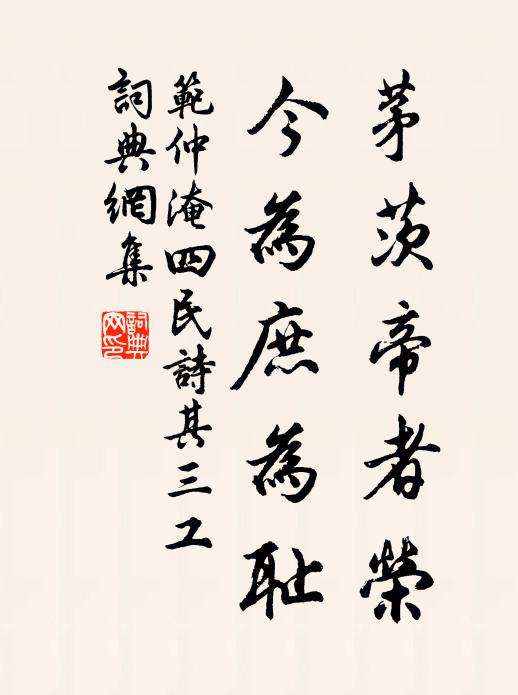 茅茨帝者榮
今為庶為耻
範仲淹四民詩其三工
詞典網集
詞典網印